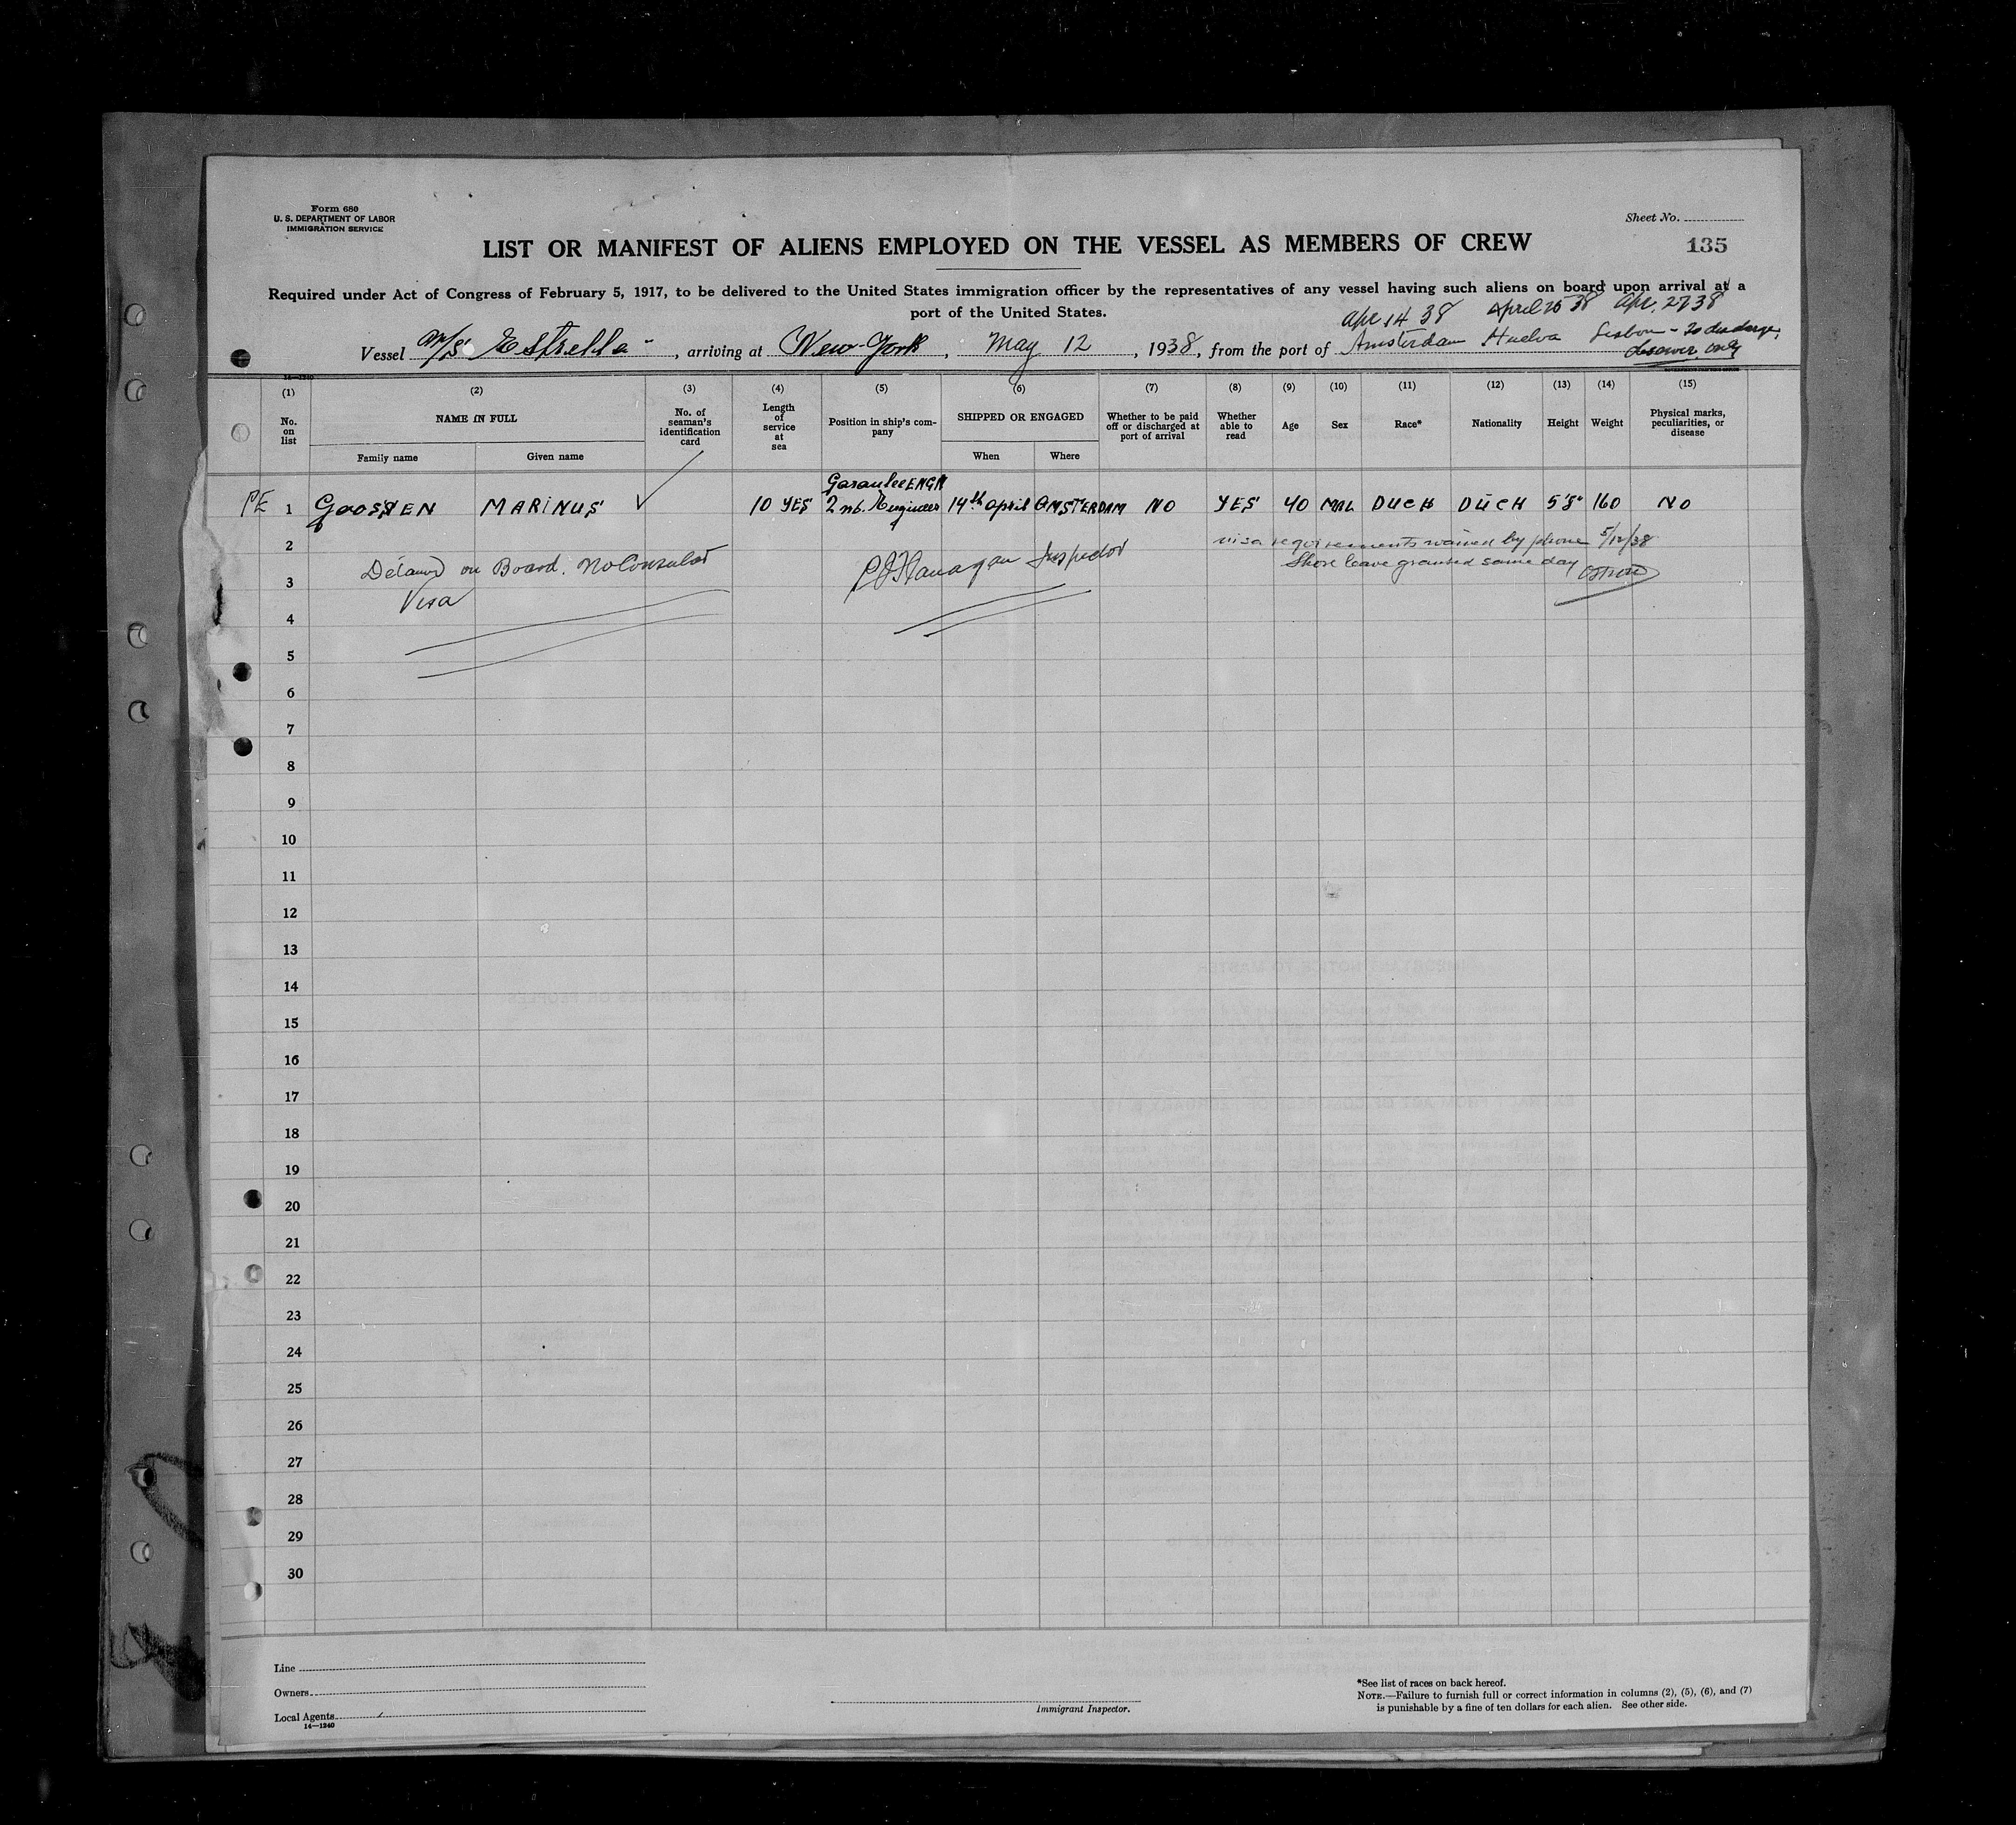 Form 680
U. S. DEPARTMENT OF LABOR
IMMIGRATION SERVICE
Sheet No.
135
LIST OR MANIFEST OF ALIENS EMPLOYED ON THE VESSEL AS MEMBERS OF CREW
Required under Act of Congress of February 5, 1917, to be delivered to the United States immigration officer by the representatives of any vessel having such aliens on board upon arrival at a
port of the United States.
Apr 14 38 April 25 38 Apr. 27, 38
Vessel M/S Estrella, arriving at New-York, May 12, 1938, from the port of Amsterdam Huelva Lisbon - To discharge
only
14—1240
(1) (2) (3) (4) (5) (6) (7) (8) (9) (10) (11) (12) (13) (14) (15)
No. on list NAME IN FULL No. of seaman's identification card Length of service at sea Position in ship's company SHIPPED OR ENGAGED Whether to be paid off or discharged at port of arrival Whether able to read Age Sex Race* Nationality Height Weight Physical marks, peculiarities, or disease
Family name Given name When Where
Garantee ENGN
PE 1 GOOSSEN MARINUS 10 YES 2nd. Engineer 14th april AMSTERDAM NO YES 40 MAL DUCH DUCH 5'8" 160 NO
2 visa requirements waived by phone 5/12/38
Detained on Board. No Consular PJ Flanagan Inspector Shore leave granted same day
3
Visa
4
5
6
7
8
9
10
11
12
13
14
15
16
17
18
19
20
21
22
23
24
25
26
27
28
29
30
Line
Owners
Local Agents
14—1240
Immigrant Inspector.
*See list of races on back hereof.
NOTE.—Failure to furnish full or correct information in columns (2), (5), (6), and (7)
is punishable by a fine of ten dollars for each alien. See other side.